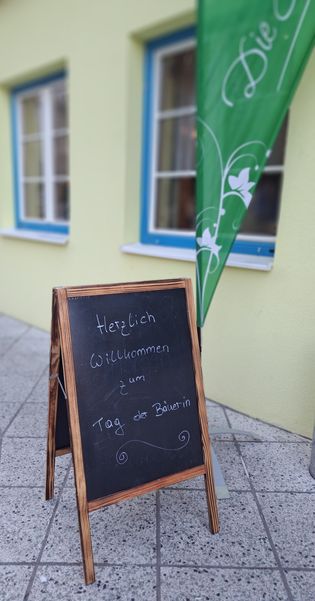 Die
Herzlich
Willkommen
zum
Tag der Bäuerin